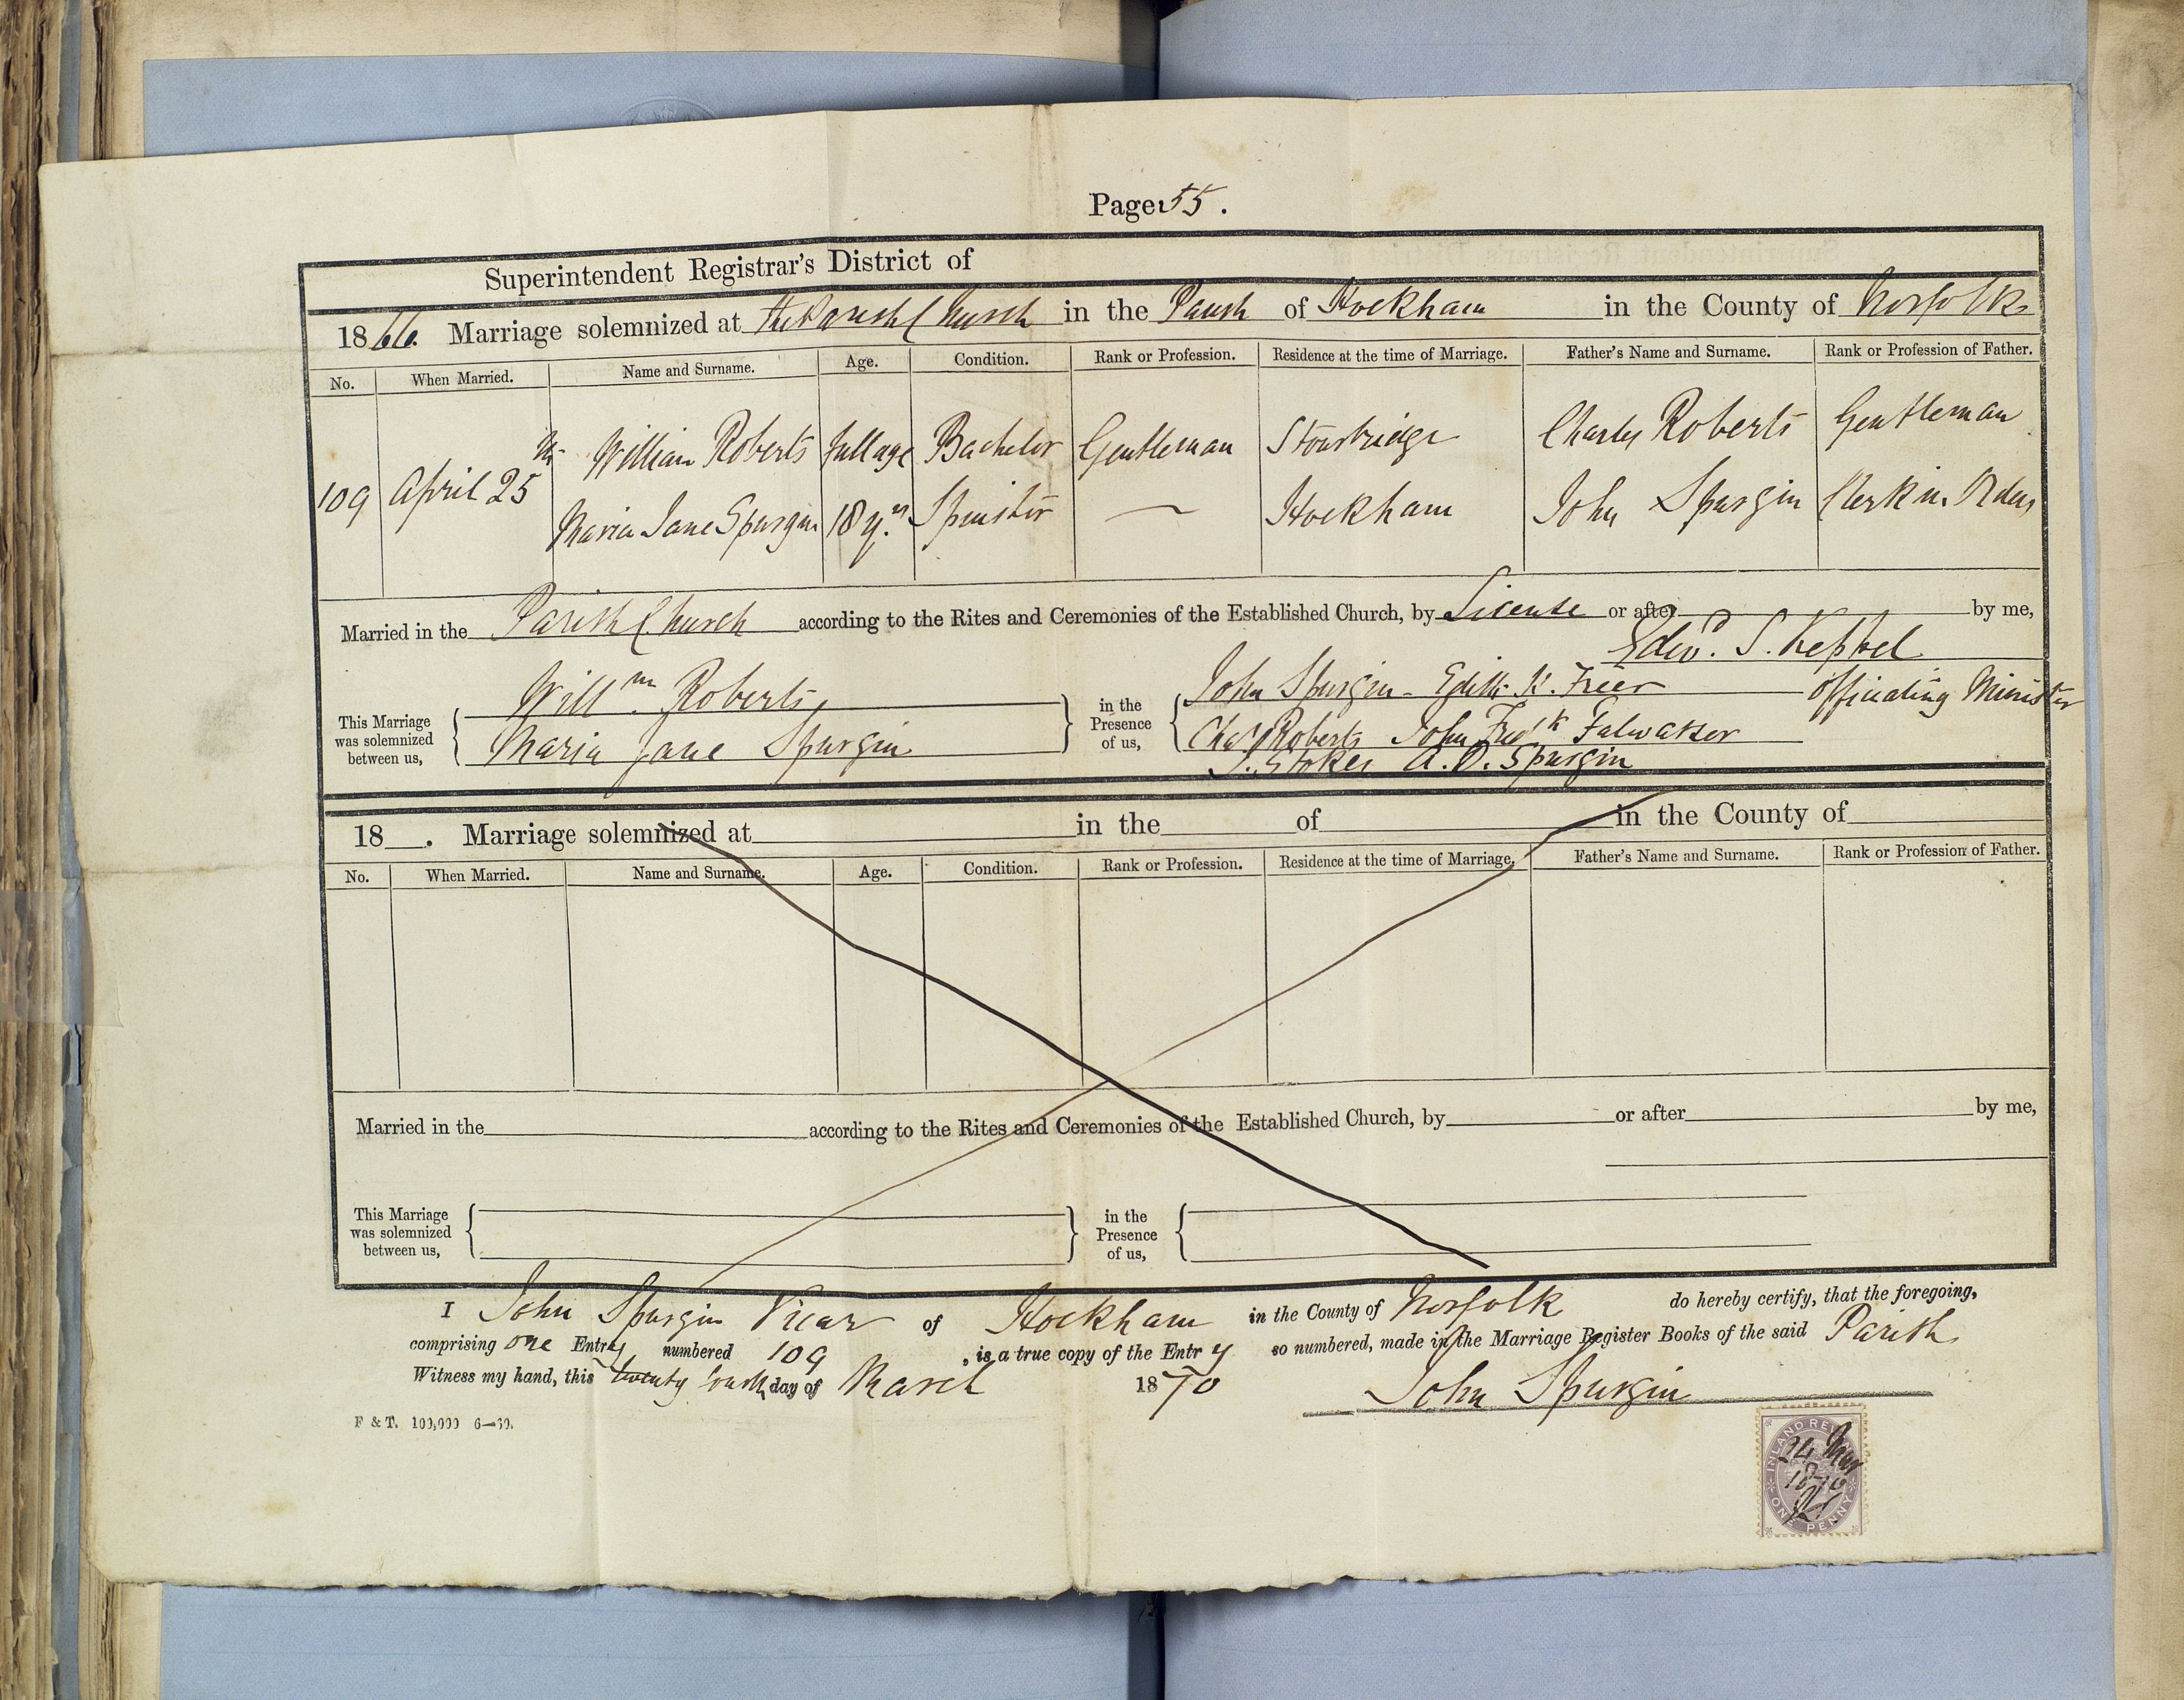 Page 55.
Superintendent Registrar's District of
1866. Marriage solemnized at the Parish Church in the Parish of Hockham in the County of Norfolk
No. When Married. Name and Surname. Age. Condition. Rank or Profession. Residence at the time of Marriage. Father's Name and Surname. Rank or Profession of Father.
William Roberts full age Bachelor Gentleman Stourbridge Charles Roberts Gentleman
109 April 25th
Maria Jane Spurgin 18 yrs Spinster — Hockham John Spurgin Clerk in Orders
Married in the Parish Church according to the Rites and Ceremonies of the Established Church, by License or after by me,
Edwd. S. Keppel
Officiating Minister
This Marriage was solemnized between us,
Willm. Roberts
Maria Jane Spurgin
in the Presence of us,
John Spurgin - Edith K. Freer
Chas Roberts John Fredk Fulwakser
J. Stokes A. D. Spurgin
18 . Marriage solemnized at in the of in the County of
No. When Married. Name and Surname. Age. Condition. Rank or Profession. Residence at the time of Marriage. Father's Name and Surname. Rank or Profession of Father.
Married in the according to the Rites and Ceremonies of the Established Church, by or after by me,
This Marriage was solemnized between us,
in the Presence of us,
I John Spurgin Vicar of Hockham in the County of Norfolk do hereby certify, that the foregoing,
comprising one Entry numbered 109, is a true copy of the Entry so numbered, made in the Marriage Register Books of the said Parish
Witness my hand, this twenty fourth day of March 1870 John Spurgin
F & T. 100,000 6—69.
INLAND REVENUE
24 Mar
1870
ONE PENNY